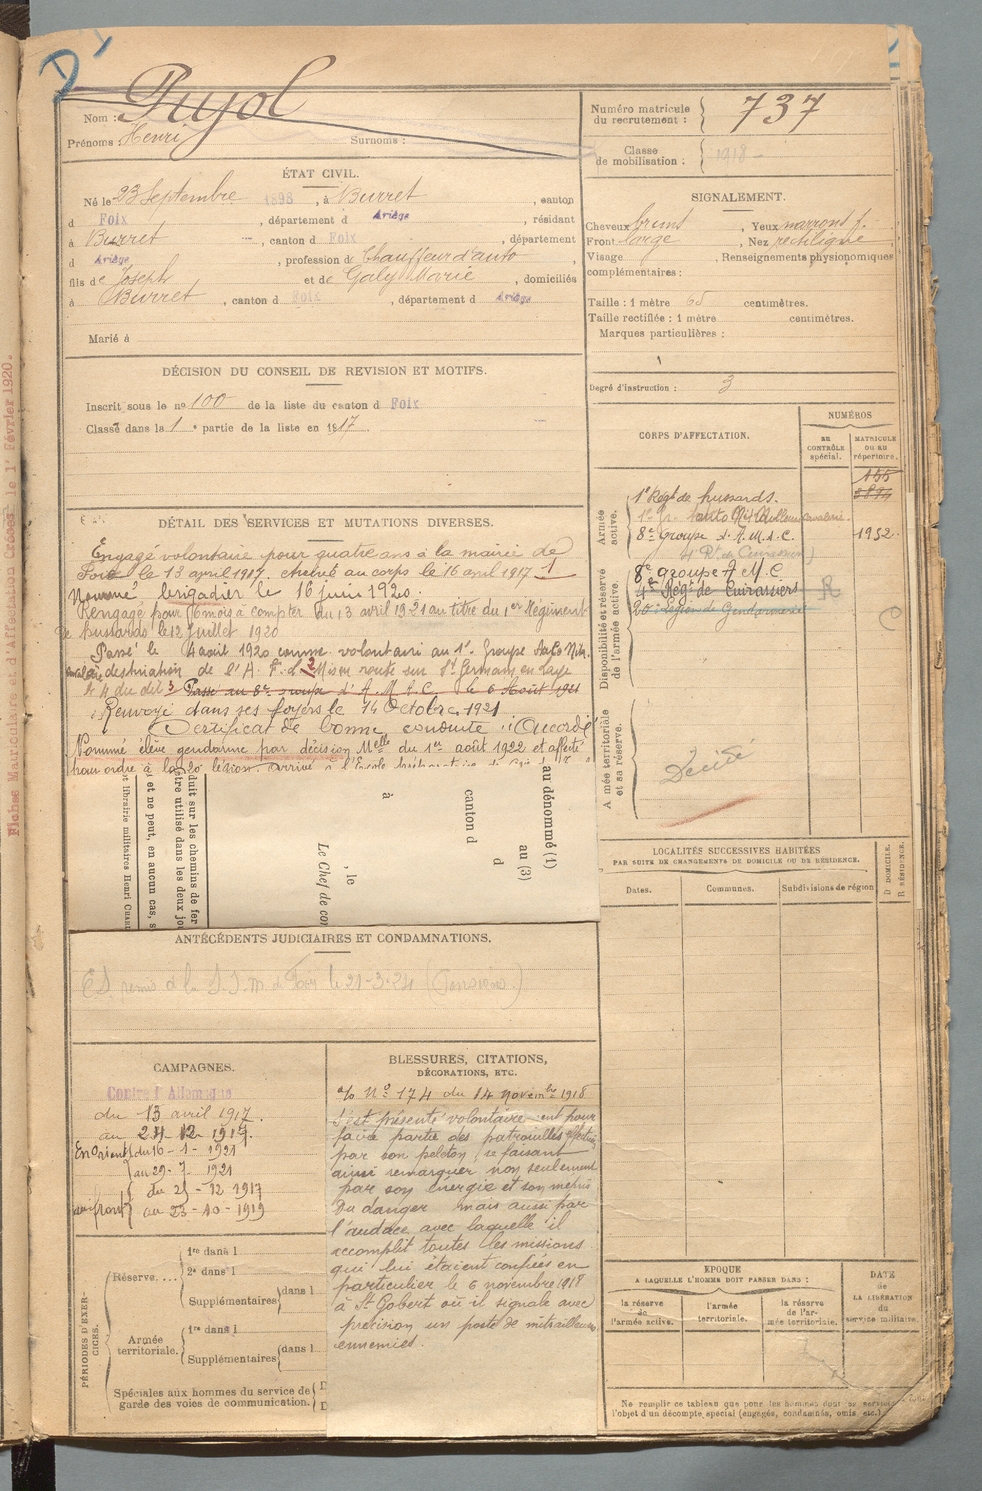 Pujol
Nom :
Prénoms : Henri Surnoms :
Numéro matricule du recrutement : 737
Classe de mobilisation : 1918
ÉTAT CIVIL.
Né le 23 Septembre 1898, à Burret, canton
d Foix, département d Ariège, résidant
à Burret, canton d Foix, département
d Ariège, profession de Chauffeur d'auto
fils de Joseph et de Galy Marie, domiciliés
à Burret, canton d Foix, département d Ariège
Marié à
SIGNALEMENT.
Cheveux bruns, Yeux marrons f.
Front large, Nez rectiligne
Visage, Renseignements physionomiques
complémentaires :
Taille : 1 mètre 65 centimètres.
Taille rectifiée : 1 mètre centimètres.
Marques particulières :
Degré d'instruction : 3
DÉCISION DU CONSEIL DE REVISION ET MOTIFS.
Inscrit sous le no 100 de la liste du canton d Foix
Classé dans la 1e partie de la liste en 1917.
DÉTAIL DES SERVICES ET MUTATIONS DIVERSES.
Engagé volontaire pour quatre ans à la mairie de
Foix le 13 avril 1917. Arrivé au corps le 16 avril 1917 1
Nommé brigadier le 16 juin 1920.
Rengagé pour 6 mois à compter du 13 avril 1921 au titre du 1er Régiment
de hussards le 12 Juillet 1920
Passé le 4 août 1920 comme volontaire au 1er Groupe Auto Mitr.
cavalerie destination de l'A. F. L. 2 Mis en route sur St Germain en Laye
le 4 du dit 3 Passé au 8e groupe d'A.M.C. le 6 Août 1921
Renvoyé dans ses foyers le 14 Octobre 1921
Certificat de bonne conduite "Accordé"
Nommé élève gendarme par décision Melle du 1er août 1922 et affecté
pour ordre à la 20e légion. Arrivé à l'École
CORPS D'AFFECTATION.
NUMÉROS
AU CONTRÔLE spécial.
MATRICULE OU AU répertoire.
Armée active.
1e Régt de hussards. 155
8e Groupe d'A.M.C. 1952
4e Rt de Cuirassiers
Disponibilité et réserve de l'armée active.
8e groupe A M C
4e Rég. de Cuirassiers R
20e Légion de Gendarmerie
Armée territoriale et sa réserve.
LOCALITÉS SUCCESSIVES HABITÉES
PAR SUITE DE CHANGEMENTS DE DOMICILE OU DE RÉSIDENCE.
Dates. Communes. Subdivisions de région
D DOMICILE.
R RÉSIDENCE.
au dénommé (1)
au (3)
d
canton d
à
, le
Le Chef de cor
duit sur les chemins de fer
être utilisé dans les deux jo
et ne peut, en aucun cas, s
et librairie militaires Henri Char
ANTÉCÉDENTS JUDICIAIRES ET CONDAMNATIONS.
remis à la S.I.M. de Foix le 21-3-24 (Pensions)
CAMPAGNES.
Contre l'Allemagne
du 13 avril 1917.
au 24 12 1917.
En Orient du 16-1-1921
au 29-7-1921
du 25-12-1917
au front au 23-10-1919
BLESSURES, CITATIONS,
DÉCORATIONS, ETC.
No 174 du 14 novembre 1918
s'est présenté volontairement pour
faire partie des patrouilles effectuées
par son peloton, se faisant
ainsi remarquer non seulement
par son énergie et son mépris
du danger mais aussi par
l'audace avec laquelle il
accomplit toutes les missions
qui lui étaient confiées en
particulier le 6 novembre 1918
à St Gobert où il signale avec
précision un poste de mitrailleuses
ennemies.
PÉRIODES D'EXERCICES.
Réserve....
1re dans l
2e dans l
Supplémentaires dans l
Armée territoriale.
1re dans l
Supplémentaires dans l
Spéciales aux hommes du service de
garde des voies de communication.
EPOQUE
A LAQUELLE L'HOMME DOIT PASSER DANS :
la réserve de l'armée active.
l'armée territoriale.
la réserve de l'armée territoriale.
DATE de LA LIBÉRATION du service militaire.
Ne remplir ce tableau que pour les hommes dont le service
l'objet d'un décompte spécial (engagés, condamnés, omis, etc.)
Fiches Matriculaire et d'Affectation Créées le 1r Février 1920.